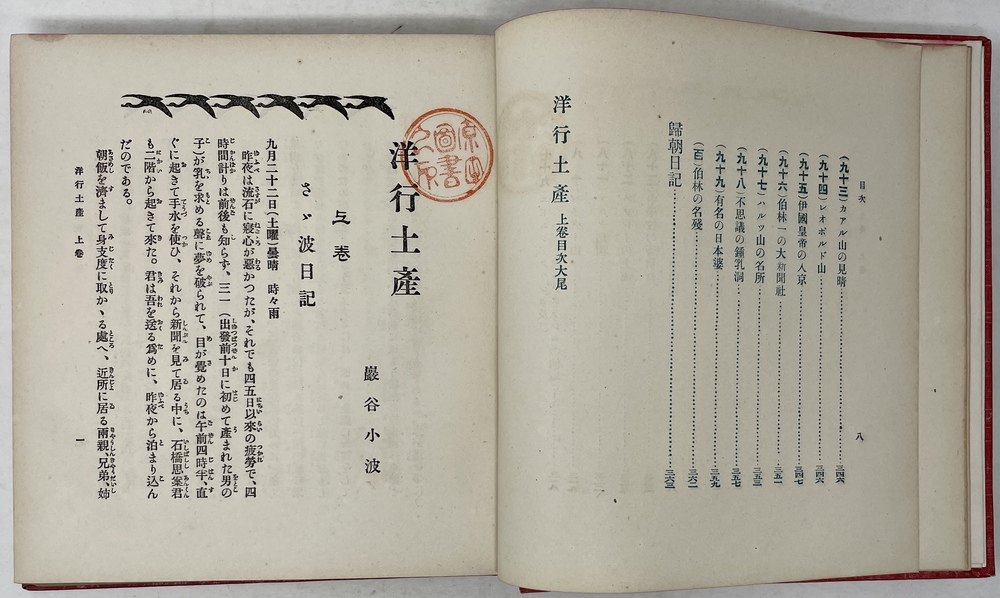 目次
(九十三)カアル山の見晴……三四六
(九十四)レオポルド山……三四六
(九十五)伊國皇帝の入京……三四七
(九十六)伯林一の大新聞社……三五一
(九十七)ハルツ山の名所……三五三
(九十八)不思議の鍾乳洞……三五七
(九十九)有名の日本婆……三五九
(百)伯林の名殘……三六二
歸朝日記……三六三
洋行土產 上卷目次大尾
八
洋行土產
巖谷小波
上卷
さゞ波日記
九月二十二日(土曜)曇晴 時々雨
昨夜は流石に寢心が惡かつたが、それでも四五日以來の疲勞で、四
時間計りは前後も知らず、三一(出發前十日に初めて產まれた男の
子)が乳を求める聲に夢を破られて、目が覺めたのは午前四時半、直
ぐに起きて手水を使ひ、それから新聞を見て居る中に、石橋思案君
も二階から起きて來た。君は吾を送る爲めに、昨夜から泊まり込ん
だのである。
朝飯を濟まして身支度に取かゝる處へ、近所に居る兩親、兄弟、姉
洋行土產 上卷
一